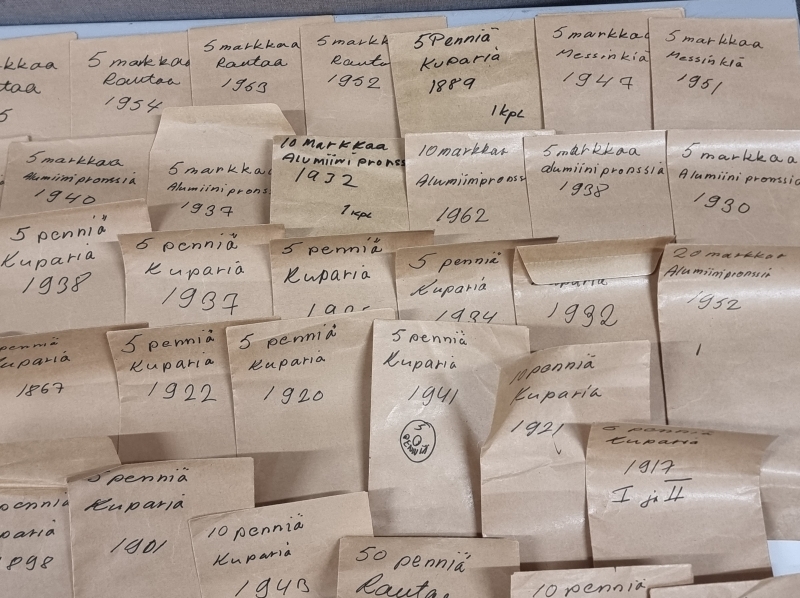 kkaa
taa
5
5 markkaa
Rautaa
1954
5 markkaa
Rautaa
1953
5 markk
Rauta
1952
5 Penniä
Kuparia
1889
1 kpl
5 markkaa
Messinkiä
1947
5 markkaa
Messinkiä
1951
5 markkaa
Alumiinipronssiä
1940
5 markkaa
Alumiinipronss
1937
10 Markkaa
Alumiinipronss
1932
1 kpl
10 markkaa
Alumiinipronss
1962
5 markkaa
alumiinipronssiä
1938
5 markkaa
Alumiinipronssia
1930
5 penniä
Kuparia
1938
5 penniä
Kuparia
1937
5 penniä
Kuparia
5 penniä
Kuparia
1934
1932
20 markkaa
Alumiinipronssia
1952
1
penniä
uparia
1867
5 penniä
Kuparia
1922
5 penniä
Kuparia
1920
5 penniä
Kuparia
1941
5
PENNIÄ
10 penniä
Kuparia
1921
5 penniä
Kuparia
1917
I ja II
penni
paria
1898
5 penniä
Kuparia
1901
10 penniä
Kuparia
1943
50 penniä
Rautaa
10 penniä